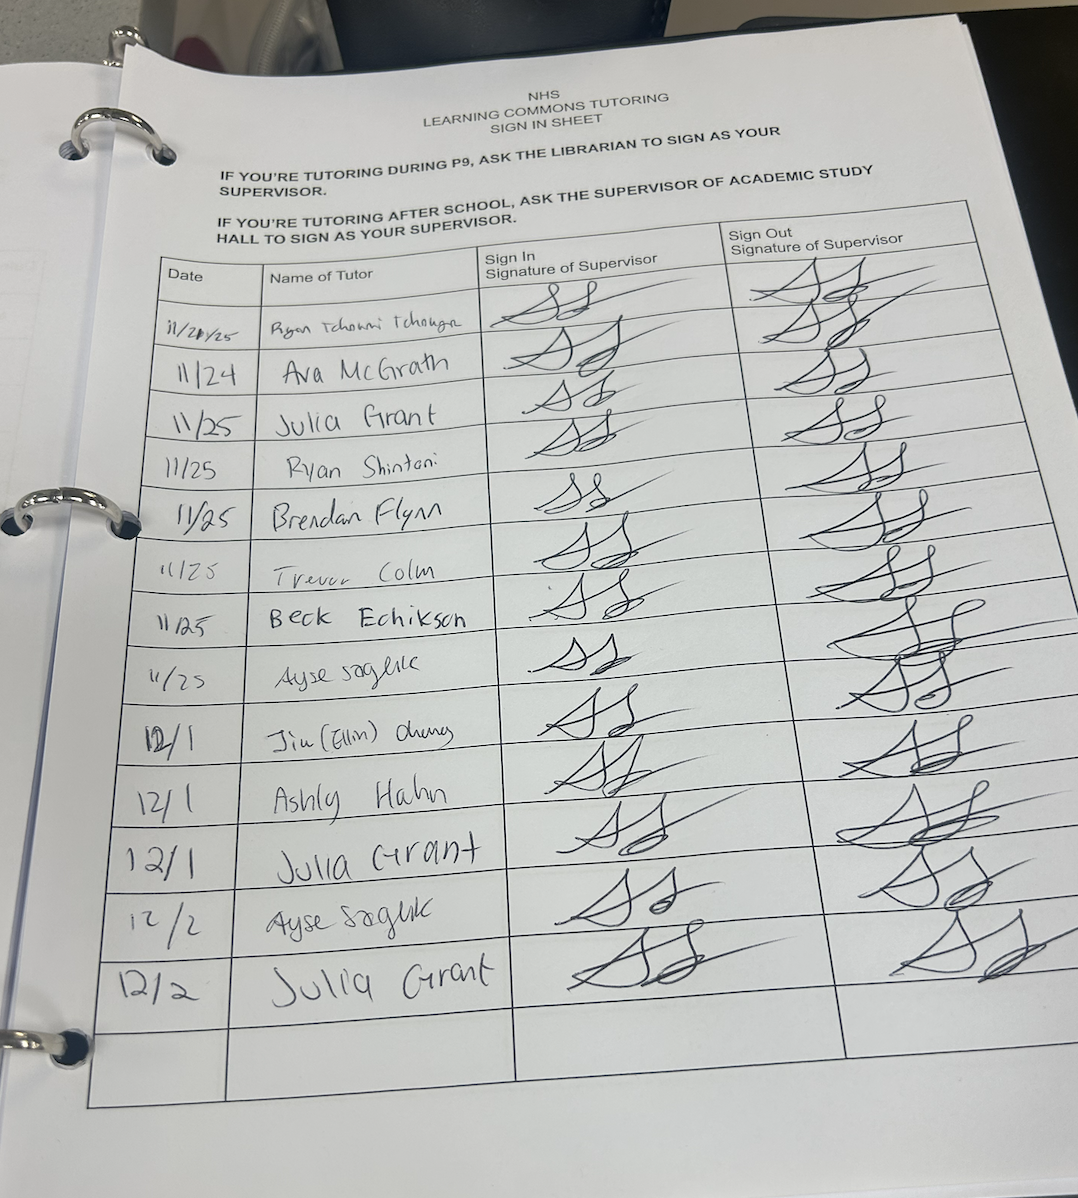 NHS
LEARNING COMMONS TUTORING
SIGN IN SHEET
IF YOU'RE TUTORING DURING P9, ASK THE LIBRARIAN TO SIGN AS YOUR
SUPERVISOR.
IF YOU'RE TUTORING AFTER SCHOOL, ASK THE SUPERVISOR OF ACADEMIC STUDY
HALL TO SIGN AS YOUR SUPERVISOR.
Date Name of Tutor Sign In Signature of Supervisor Sign Out Signature of Supervisor
Ryan Tchoumi Tchouga
11/24 Ava McGrath
11/25 Julia Grant
11/25 Ryan Shintani
11/25 Brendan Flynn
11/25 Trevor Colm
11/25 Beck Echikson
11/25 Ayse Saglik
12/1 (Ellin)
12/1 Ashly Hahn
12/1 Julia Grant
12/2 Ayse Saglik
12/2 Julia Grant